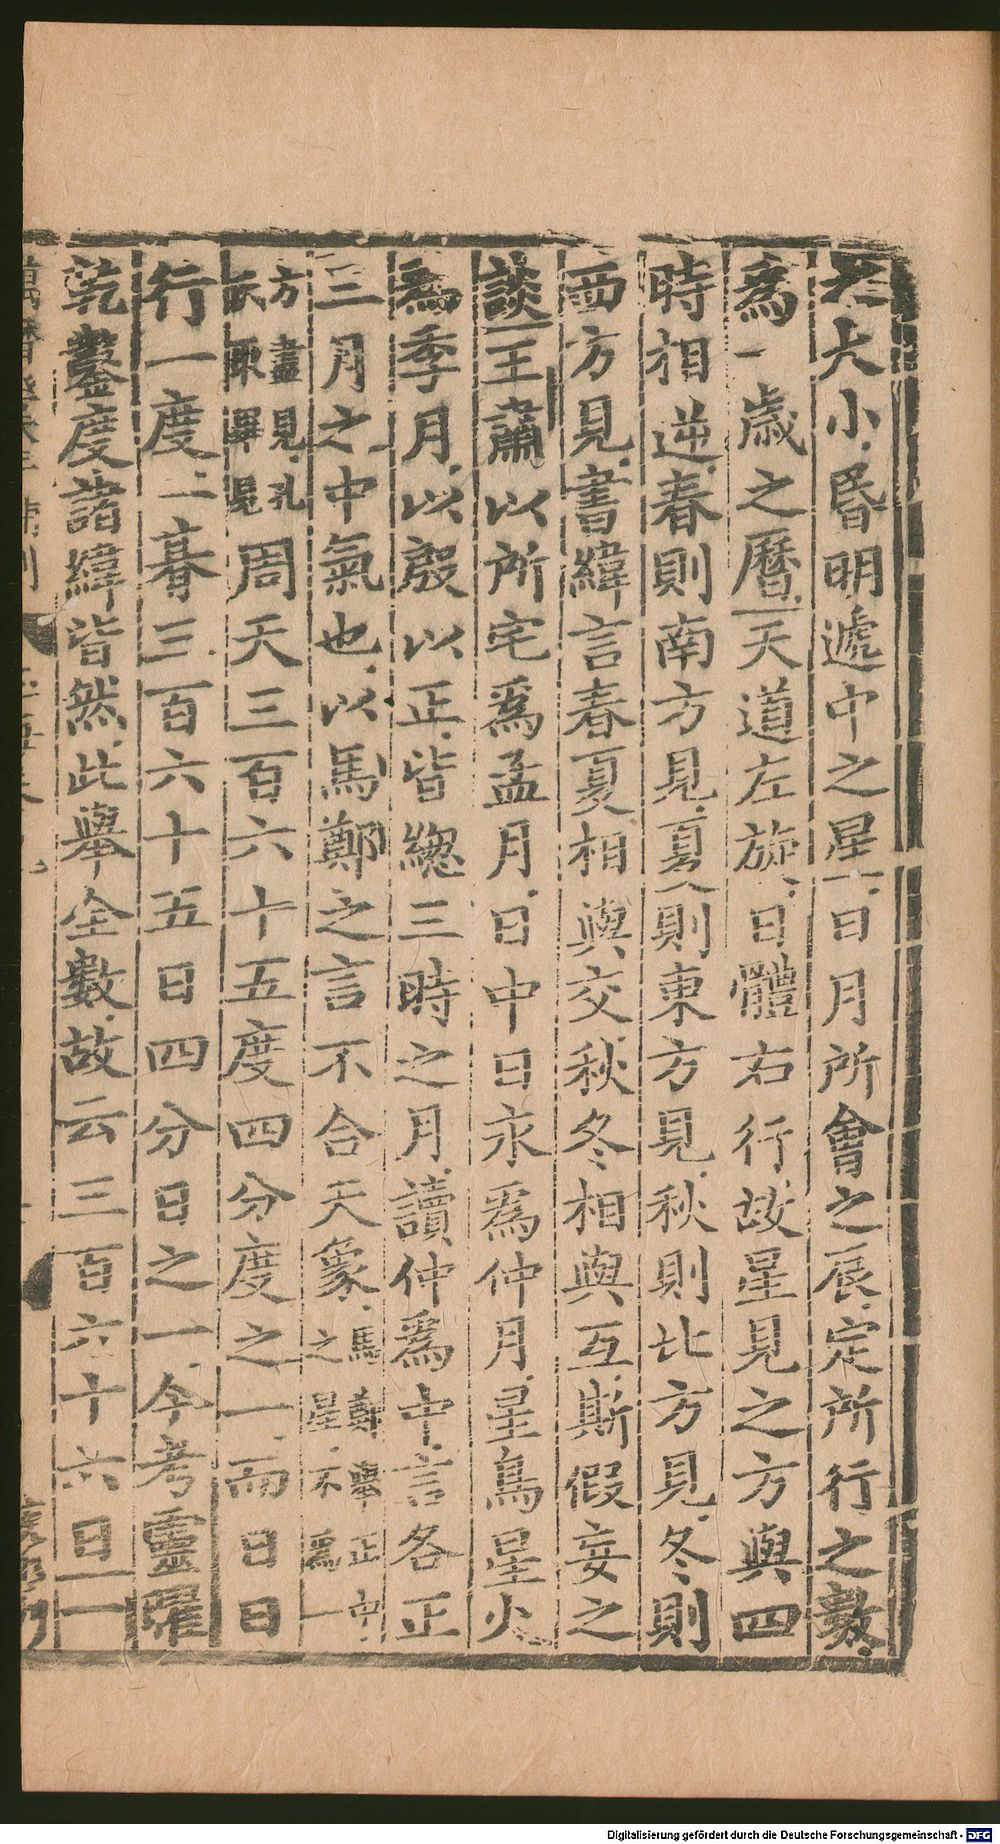 之大小昏明遞中之星一日月所會之辰定所行之數
爲一歲之曆天道左旋日體右行故星見之方與四
時相逆春則南方見夏則東方見秋則北方見冬則
西方見書緯言春夏相與交秋冬相與互斯假妄之
談王肅以所宅爲孟月日中日永爲仲月星鳥星火
爲季月以殷以正皆總三時之月讀仲爲中言各正
三月之中氣也以馬鄭之言不合天象馬鄭舉正中
之星不爲一
方盡見孔
畢見
周天三百六十五度四分度之一而日日
行一度一朞三百六十五日四分日之一今考靈曜
乾鑿度諸緯皆然此舉全數故云三百六十六日一
Digitalisierung gefördert durch die Deutsche Forschungsgemeinschaft - DFG